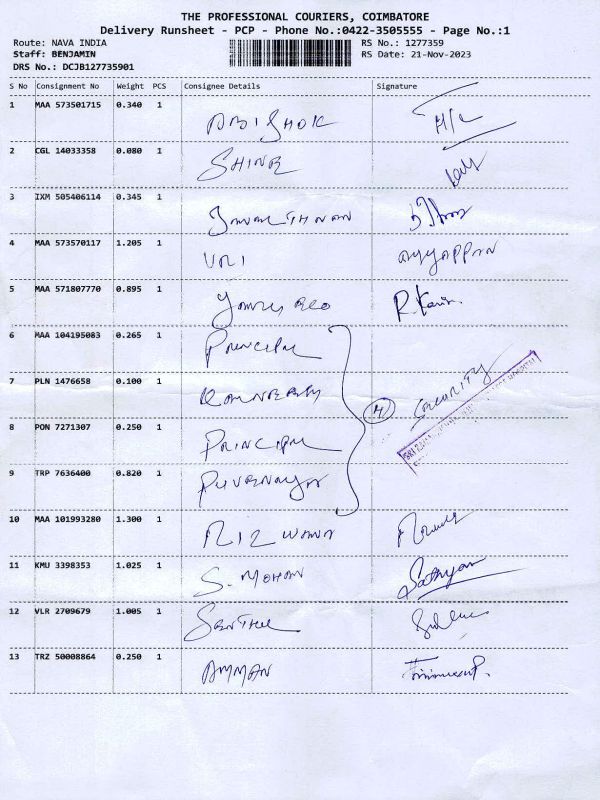 THE PROFESSIONAL COURIERS, COIMBATORE
Delivery Runsheet - PCP - Phone No.:0422-3505555 - Page No.:1
Route: NAVA INDIA RS No.: 1277359
Staff: BENJAMIN RS Date: 21-Nov-2023
DRS No.: DCJB127735901
S No Consignment No Weight PCS Consignee Details Signature
1 MAA 573501715 0.340 1 ABISHOK H/L
2 CGL 14033358 0.080 1 SHINE
3 IXM 505406114 0.345 1
4 MAA 573570117 1.205 1 UMI AYYAPPAN
5 MAA 571807770 0.895 1 R. Kavin
6 MAA 104195083 0.265 1 PRINCIPAL
7 PLN 1476658 0.100 1 SECURITY
8 PON 7271307 0.250 1 PRINCIPAL 4
9 TRP 7636400 0.820 1
10 MAA 101993280 1.300 1 RIZWANA
11 KMU 3398353 1.025 1 S. MOHAN Sathyan
12 VLR 2709679 1.005 1 SENTHIL
13 TRZ 50008864 0.250 1 AMMAN